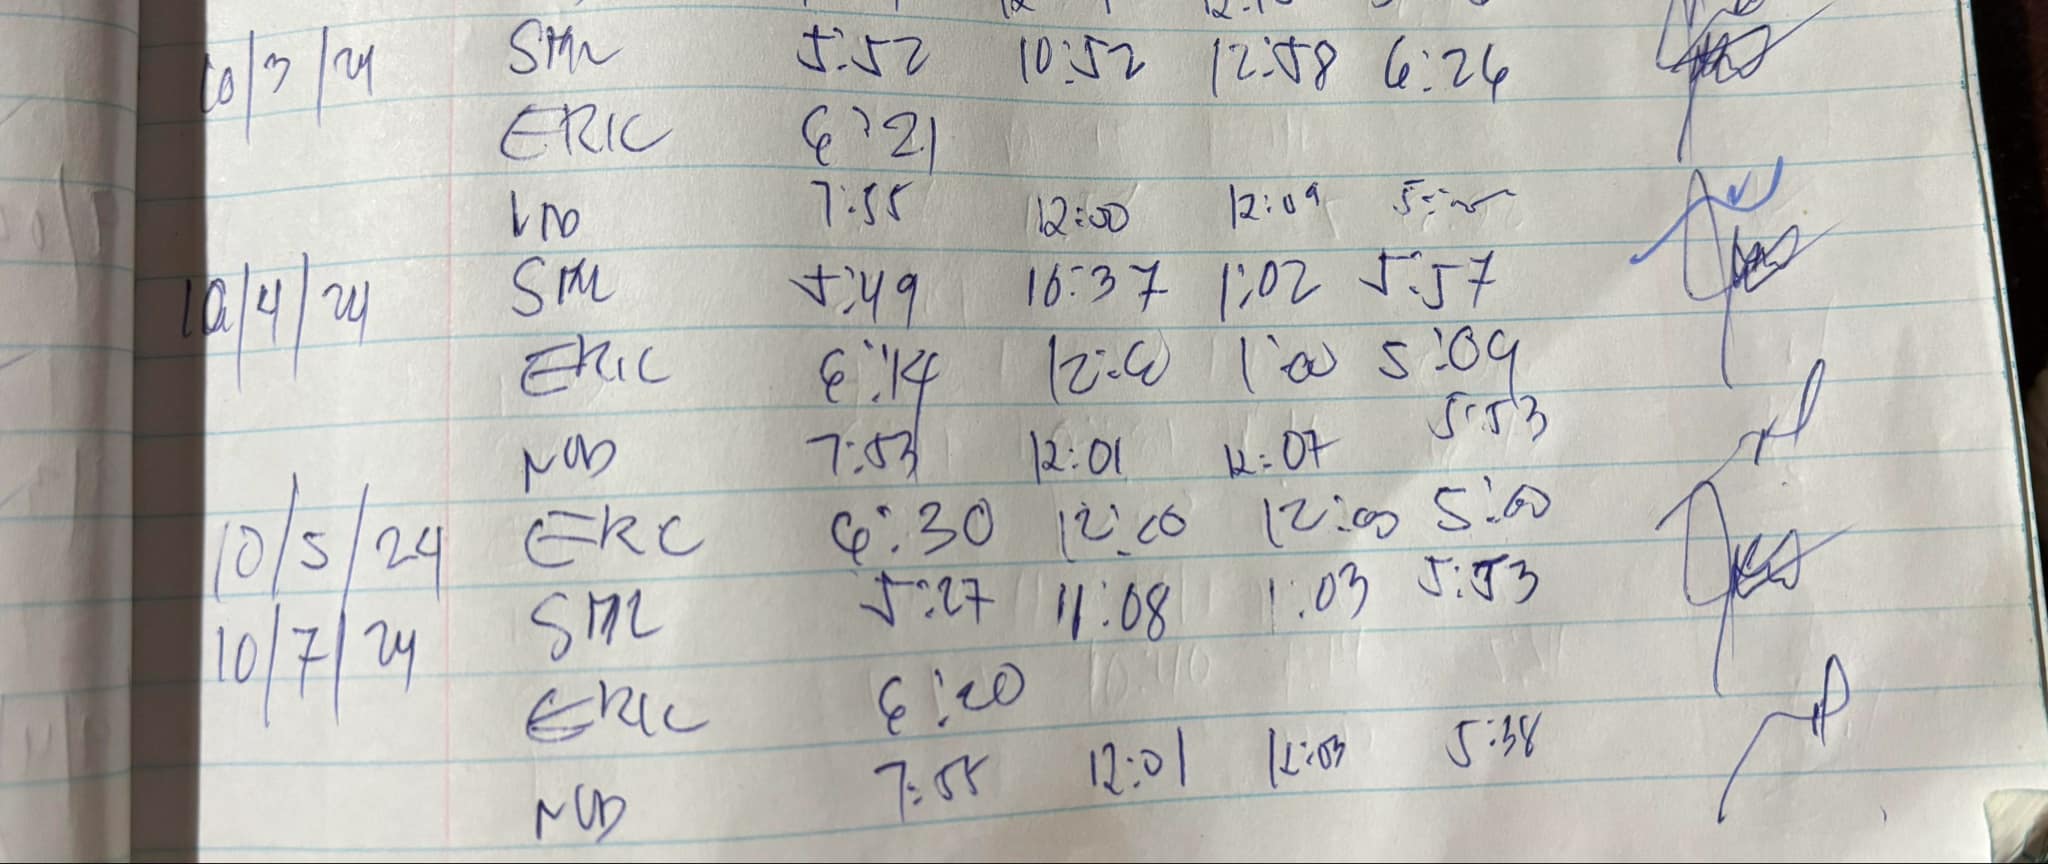 10/3/24 SML 5:52 10:52 12:58 6:26
ERIC 6:21
7:55 12:00 12:09
10/4/24 SML 5:49 10:37 1:02 5:57
ERIC 6:14 12:00 1:00 5:09
NOD 7:53 12:01 12:07 5:53
10/5/24 ERIC 6:30 12:00 12:00 5:00
10/7/24 SML 5:27 11:08 1:03 5:53
ERIC 6:20
NOD 7:55 12:01 12:03 5:38